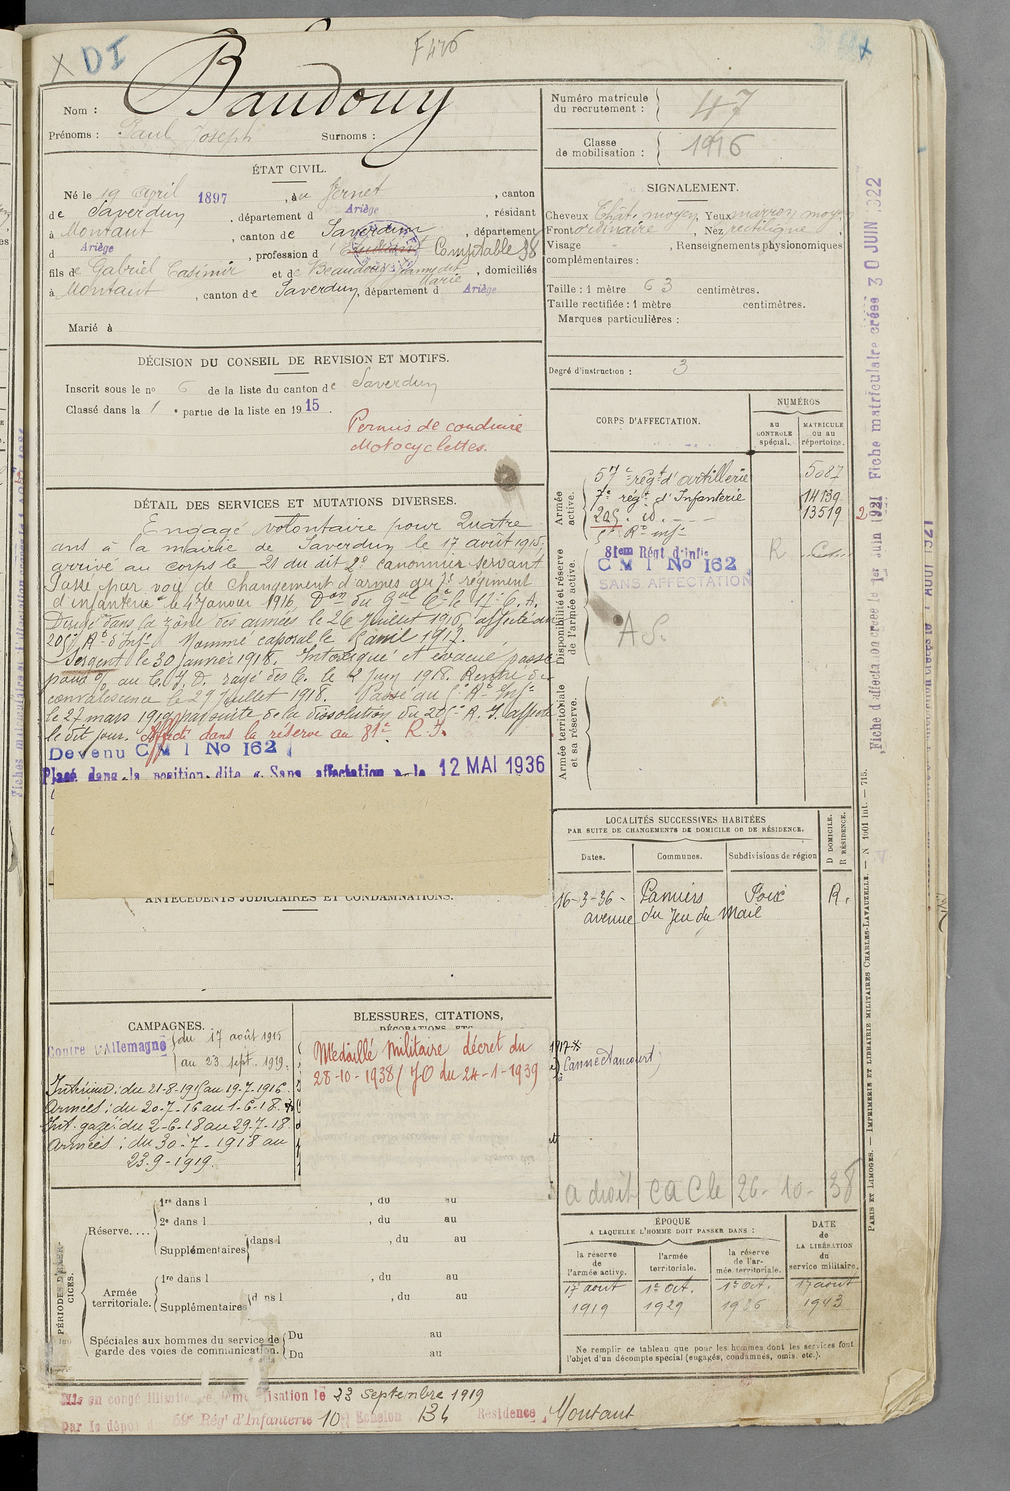 X DI
F 476
Nom : Baudouy
Prénoms : Paul Joseph Surnoms :
Numéro matricule
du recrutement : 47
Classe
de mobilisation : 1916
ÉTAT CIVIL.
Né le 19 April 1897, à Jernet, canton
de Saverdun, département d Ariège, résidant
à Montaut, canton de Saverdun, département
d Ariège, profession d Comptable 38
fils de Gabriel Casimir et de Beaudouy Fanny dit Marie, domiciliés
à Montaut, canton de Saverdun, département d Ariège
Marié à
SIGNALEMENT.
Cheveux Chât. moyen, Yeux marron moyen
Front ordinaire, Nez rectiligne
Visage - , Renseignements physionomiques
complémentaires :
Taille : 1 mètre 63 centimètres.
Taille rectifiée : 1 mètre centimètres.
Marques particulières :
Degré d'instruction : 3
DÉCISION DU CONSEIL DE REVISION ET MOTIFS.
Inscrit sous le no 6 de la liste du canton de Saverdun
Classé dans la 1e partie de la liste en 1915.
Permis de conduire
Motocyclettes.
CORPS D'AFFECTATION.
NUMÉROS
au
CONTROLE
spécial.
MATRICULE
ou au
répertoire.
Armée
active.
57e régt d'artillerie 5087
7e régt d'Infanterie 14139
205 . id . - - 13519
5e Rt infie
Disponibilité et réserve
de l'armée active.
81em Régt d'infie
C M I No 162
SANS AFFECTATION
R
A S.
Armée territoriale
et sa réserve.
DÉTAIL DES SERVICES ET MUTATIONS DIVERSES.
Engagé volontaire pour Quatre
ans à la mairie de Saverdun le 17 août 1915,
arrivé au corps le 21 du dit 2e canonnier servant
Passé par voie de changement d'armes au 7e régiment
d'infanterie le 4 Janvier 1916, Don du Gal Ct le 17e C. A.
Dirigé dans la zone des armées le 26 Juillet 1916, affecté au
205e Rt d'Infie Nommé caporal le avril 1917.
Sergent le 30 janvier 1918. Intoxiqué et évacué passé
au C. I. D. rayé des C. le 2 Juin 1918. Rentré de
convalescence le 29 Juillet 1918. Passé au 5e Rt Infie
le 27 mars 1919 par suite de la dissolution du 205e R. I. affecté
le dit jour. Affecté dans la réserve au 81e R. I.
Devenu C M I No 162
Placé dans la position dite « Sans affectation » le 12 MAI 1936
ANTÉCÉDENTS JUDICIAIRES ET CONDAMNATIONS.
LOCALITÉS SUCCESSIVES HABITÉES
PAR SUITE DE CHANGEMENTS DE DOMICILE OU DE RÉSIDENCE.
Dates. Communes. Subdivisions de région
D DOMICILE.
R RÉSIDENCE.
16-3-36 - Pamiers Foix R.
avenue du Jeu du Mail
CAMPAGNES.
Contre l'Allemagne
du 17 août 1915
au 23 sept. 1919.
Intérieur : du 21-8-1915 au 19-7-1916.
Armées : du 20-7-16 au 1-6-18.
Int. gazé : du 2-6-18 au 29-7-18
Armées : du 30-7-1918 au
23-9-1919.
BLESSURES, CITATIONS,
DÉCORATIONS, ETC.
Médaillé Militaire décret du
28-10-1938 (JO du 24-1-1939
a droit CAC le 26-10-38
PÉRIODES D'EXER-
CICES.
Réserve....
1re dans l , du au
2e dans l , du au
Supplémentaires dans l , du au
Armée
territoriale.
1re dans l , du au
Supplémentaires dans l , du au
Spéciales aux hommes du service de
garde des voies de communication.
Du au
Du au
ÉPOQUE
A LAQUELLE L'HOMME DOIT PASSER DANS :
la réserve
de
l'armée active.
l'armée
territoriale.
la réserve
de l'ar-
mée territoriale.
DATE
de
LA LIBÉRATION
du
service militaire.
17 août 1er Oct. 1er Oct. 17 août
1919 1929 1936 1943
Ne remplir ce tableau que pour les hommes dont les services font
l'objet d'un décompte spécial (engagés, condamnés, omis, etc.).
Mis en congé illimité de démobilisation le 23 septembre 1919
par le dépôt d 59e Régt d'Infanterie 10e Echelon 134 Résidence, Montaut
Fiche d'affectation créée le 1er Juin 1921 Fiche matriculaire créée 30 JUIN 1922
PARIS ET LIMOGES. — IMPRIMERIE ET LIBRAIRIE MILITAIRES CHARLES-LAVAUZELLE. — N° 1601 Int. — 715.